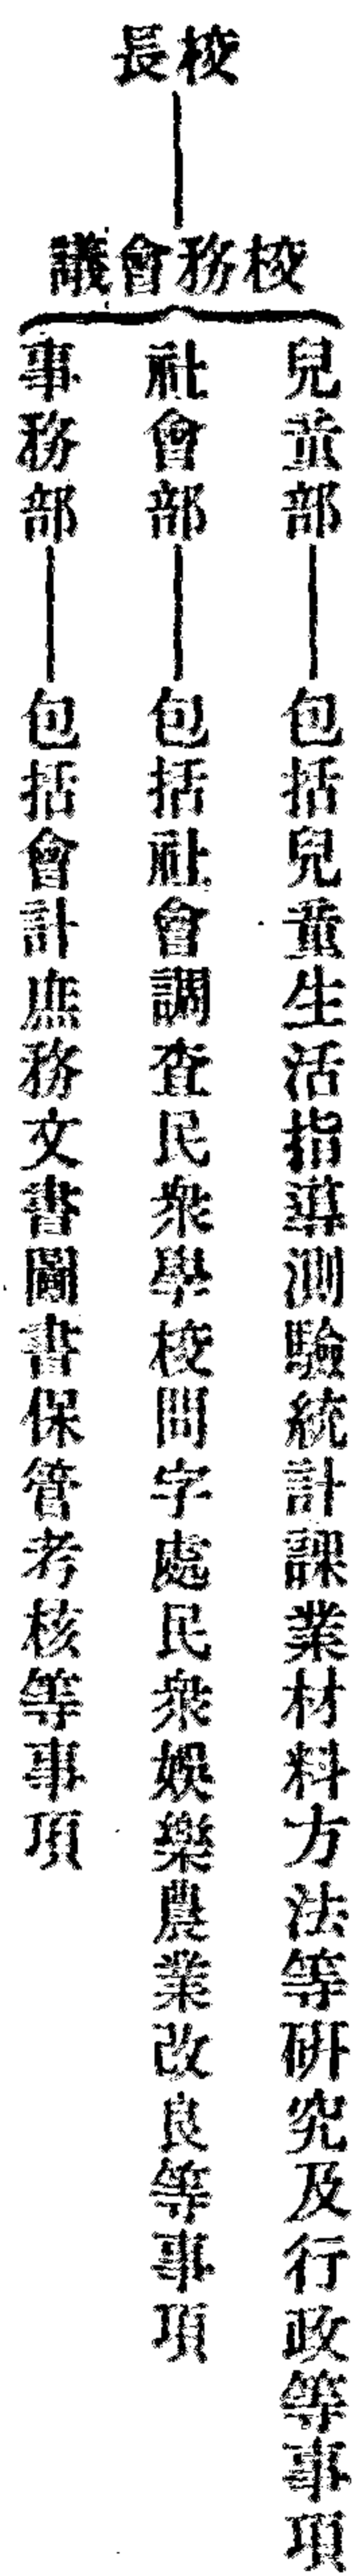 校長
校務會議
兒童部——包括兒童生活指導測驗統計課業材料方法等研究及行政等事項
社會部——包括社會調查民衆學校問字處民衆娛樂農業改良等事項
事務部——包括會計庶務文書圖書保管考核等事項